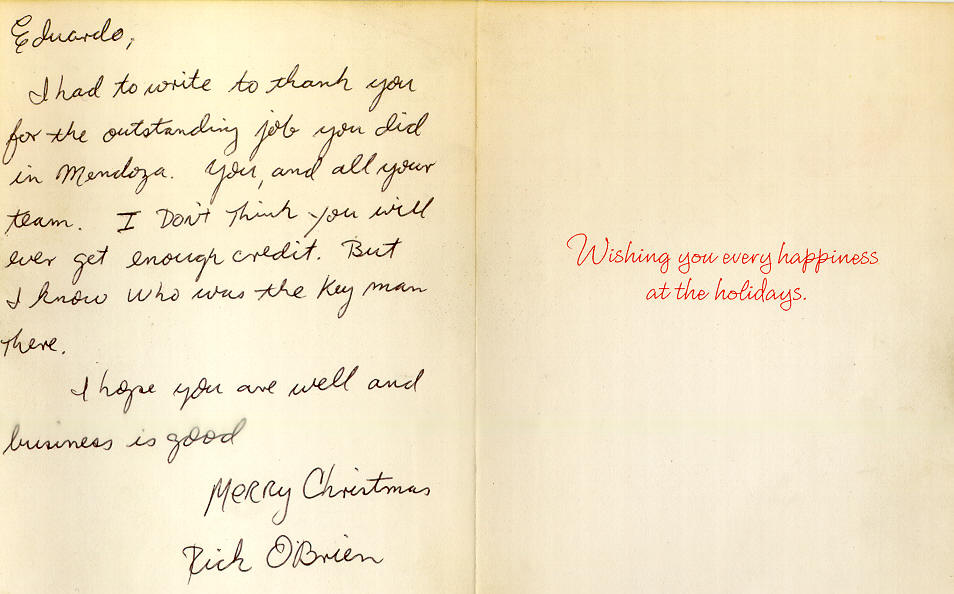 Eduardo,
I had to write to thank you
for the outstanding job you did
in Mendoza. You, and all your
team. I Don't Think you will
ever get enough credit. But
I know who was the Key man
There.
I hope you are well and
business is good
Merry Christmas
Rick O'Brien
Wishing you every happiness
at the holidays.